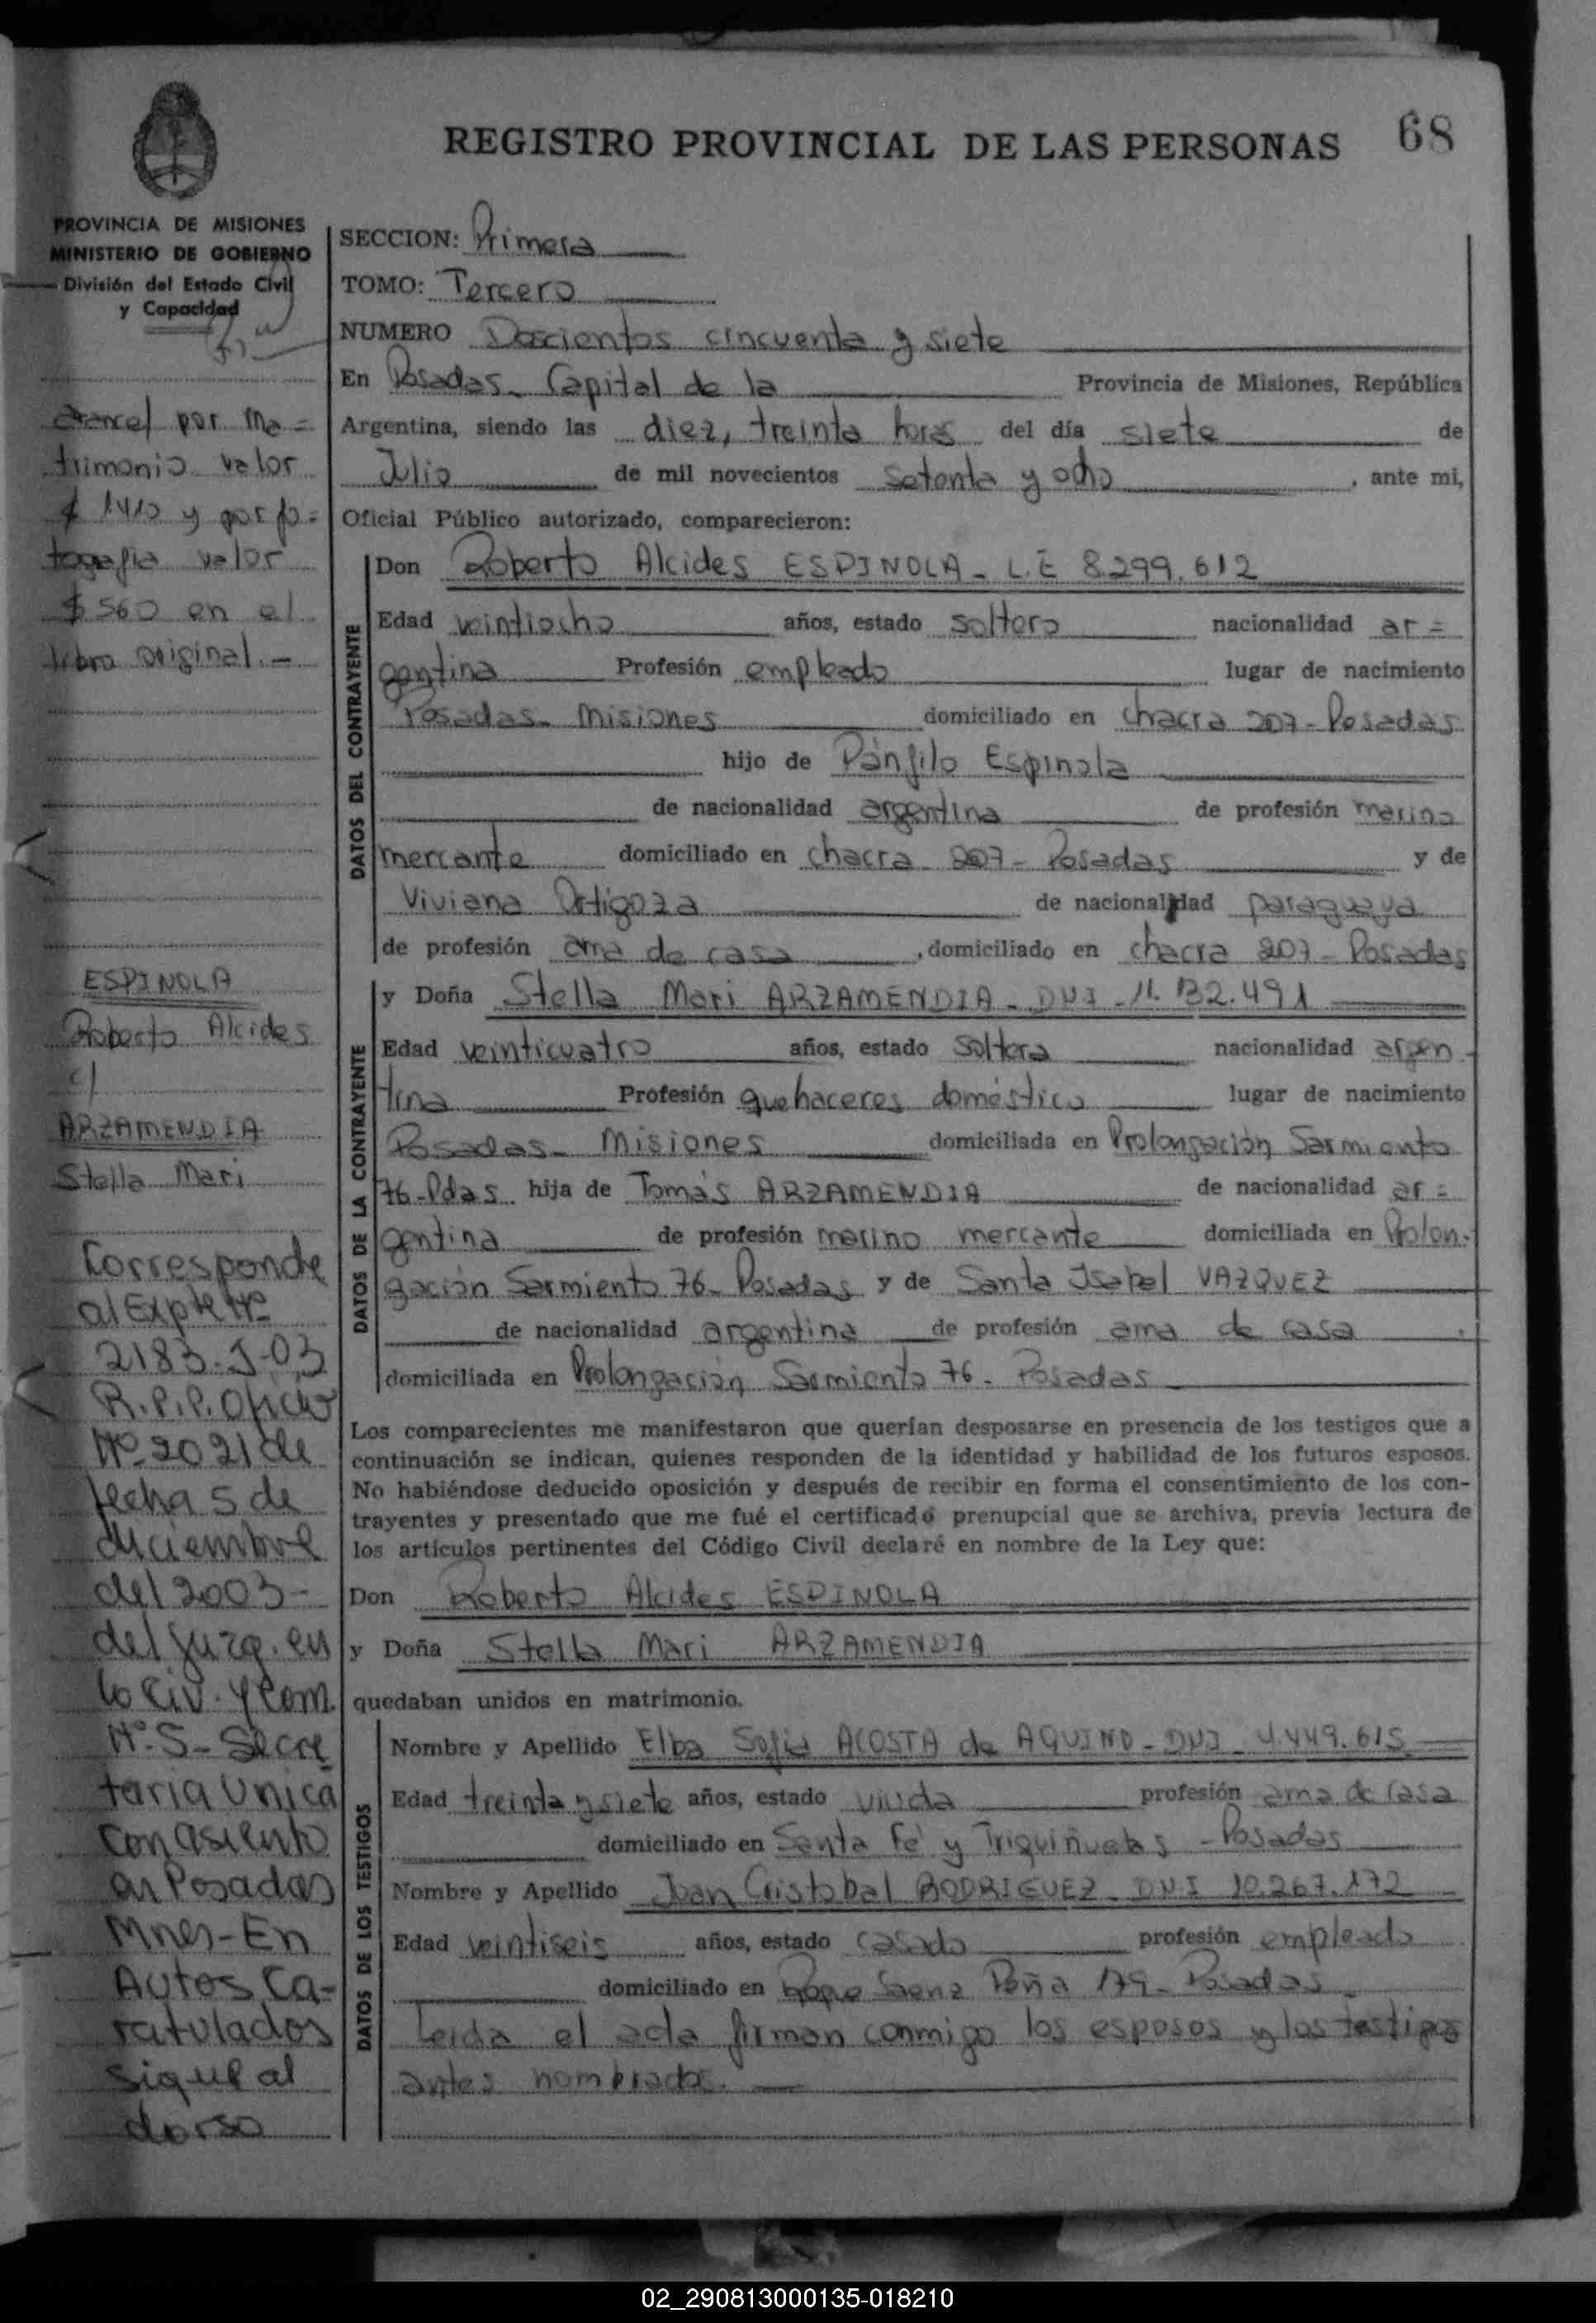 REGISTRO PROVINCIAL DE LAS PERSONAS 68
PROVINCIA DE MISIONES
MINISTERIO DE GOBIERNO
División del Estado Civil
y Capacidad
Arancel por Ma=
trimonio valor
$ 1410 y por fo=
tografia valor
$ 560 en el
libro original.-
ESPINOLA
Roberto Alcides
c/
ARZAMENDIA
Stella Mari
Corresponde
al Expte Nº
2183-J-03
R.P.P. Oficio
Nº 2021 de
fecha 5 de
diciembre
del 2003-
del Juzg. en
lo Civ. y Com.
Nº 5- Secre
taria Unica
con asiento
en Posadas
Mnes- En
Autos Ca-
ratulados
sigue al
dorso
SECCION: Primera
TOMO: Tercero
NUMERO Doscientos cincuenta y siete
En Posadas- Capital de la Provincia de Misiones, República
Argentina, siendo las diez, treinta horas del día siete de
Julio de mil novecientos setenta y ocho, ante mi,
Oficial Público autorizado, comparecieron:
DATOS DEL CONTRAYENTE
Don Roberto Alcides ESPINOLA- L.E 8.299.612
Edad veintiocho años, estado soltero nacionalidad ar=
gentina Profesión empleado lugar de nacimiento
Posadas- Misiones domiciliado en chacra 207- Posadas
hijo de Pánfilo Espinola
de nacionalidad argentina de profesión marino
mercante domiciliado en chacra 207- Posadas y de
Viviana Ortigoza de nacionalidad paraguaya
de profesión ama de casa, domiciliado en chacra 207- Posadas
DATOS DE LA CONTRAYENTE
y Doña Stella Mari ARZAMENDIA- DNI- 11.132.491
Edad veinticuatro años, estado soltera nacionalidad argen-
tina Profesión quehaceres doméstico lugar de nacimiento
Posadas- Misiones domiciliada en Prolongación Sarmiento
76-Pdas hija de Tomás ARZAMENDIA de nacionalidad ar=
gentina de profesión marino mercante domiciliada en Prolon-
gación Sarmiento 76- Posadas y de Santa Isabel VAZQUEZ
de nacionalidad argentina de profesión ama de casa,
domiciliada en Prolongación Sarmiento 76- Posadas
Los comparecientes me manifestaron que querían desposarse en presencia de los testigos que a
continuación se indican, quienes responden de la identidad y habilidad de los futuros esposos.
No habiéndose deducido oposición y después de recibir en forma el consentimiento de los con-
trayentes y presentado que me fué el certificado prenupcial que se archiva, previa lectura de
los artículos pertinentes del Código Civil declaré en nombre de la Ley que:
Don Roberto Alcides ESPINOLA
y Doña Stella Mari ARZAMENDIA
quedaban unidos en matrimonio.
DATOS DE LOS TESTIGOS
Nombre y Apellido Elba Sofia ACOSTA de AQUINO- DNI- 4.449.615
Edad treinta y siete años, estado viuda profesión ama de casa
domiciliado en Santa Fé y Triquiñuelas - Posadas
Nombre y Apellido Juan Cristobal RODRIGUEZ- DNI 10.267.172
Edad veintiseis años, estado casado profesión empleado
domiciliado en Roque Saenz Peña 179- Posadas-
Leida el acta firman conmigo los esposos y los testigos
antes nombrados.
02_290813000135-018210